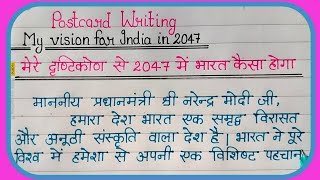 Postcard Writing
My vision for India in 2047
मेरे दृष्टिकोण से 2047 में भारत कैसा होगा
माननीय प्रधानमंत्री श्री नरेन्द्र मोदी जी,
हमारा देश भारत एक समृद्ध विरासत
और अनूठी संस्कृति वाला देश है। भारत ने पूरे
विश्व में हमेशा से अपनी एक विशिष्ट पहचान